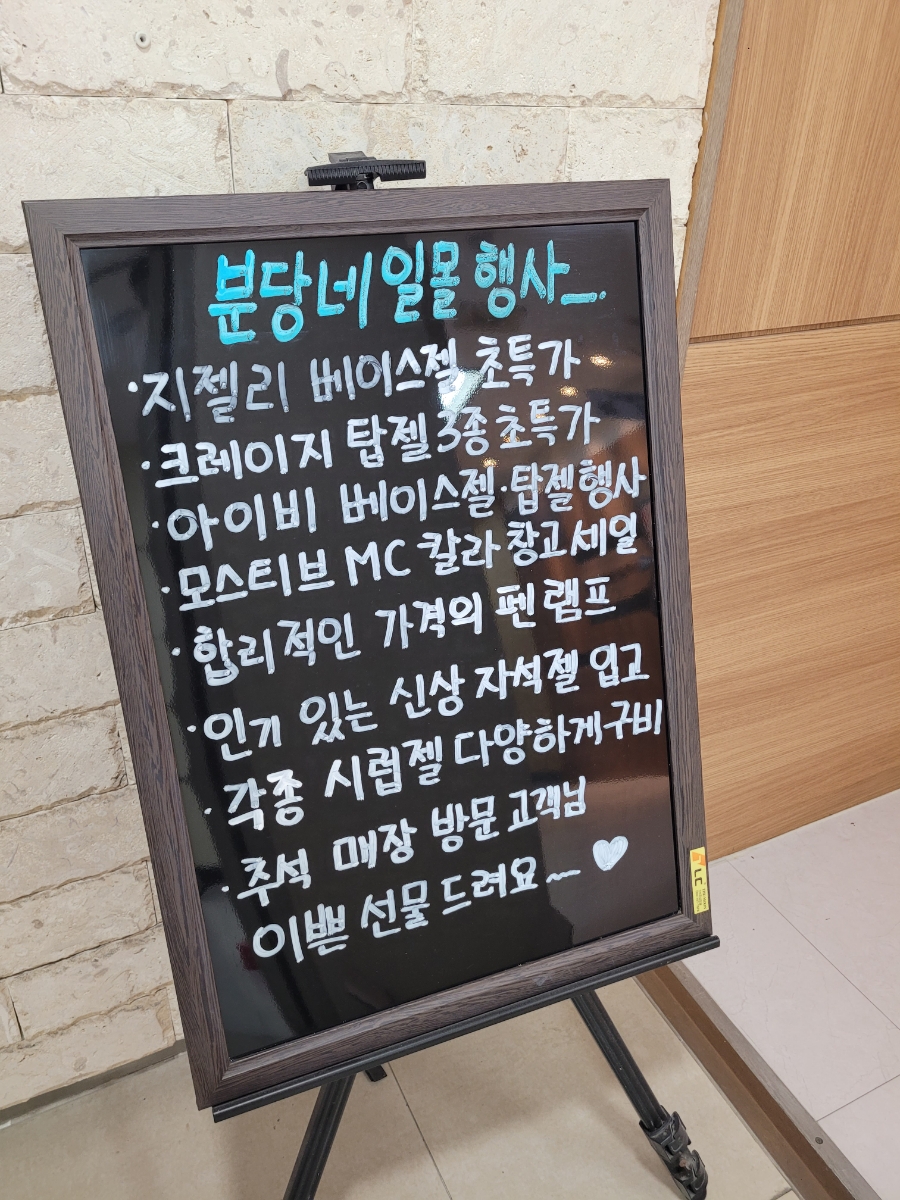 분당네일몰 행사_.
·지젤리 베이스젤 초특가
·크레이지 탑젤 3종 초특가
·아이비 베이스젤·탑젤행사
·모스티브 MC 칼라 창고세일
·합리적인 가격의 펜램프
·인기 있는 신상 자석젤 입고
·각종 시럽젤 다양하게구비
·추석 매장 방문 고객님
이쁜 선물 드려요~ ♥
LC